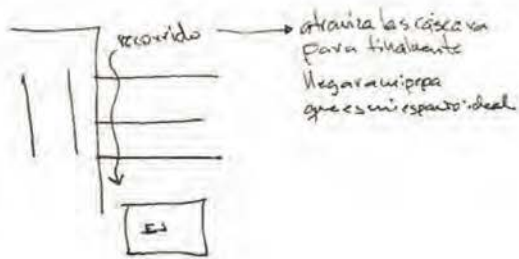 recorrido
atraviesa las cáscaras
para finalmente
llegar a mi pepa
que es mi espacio ideal
EI